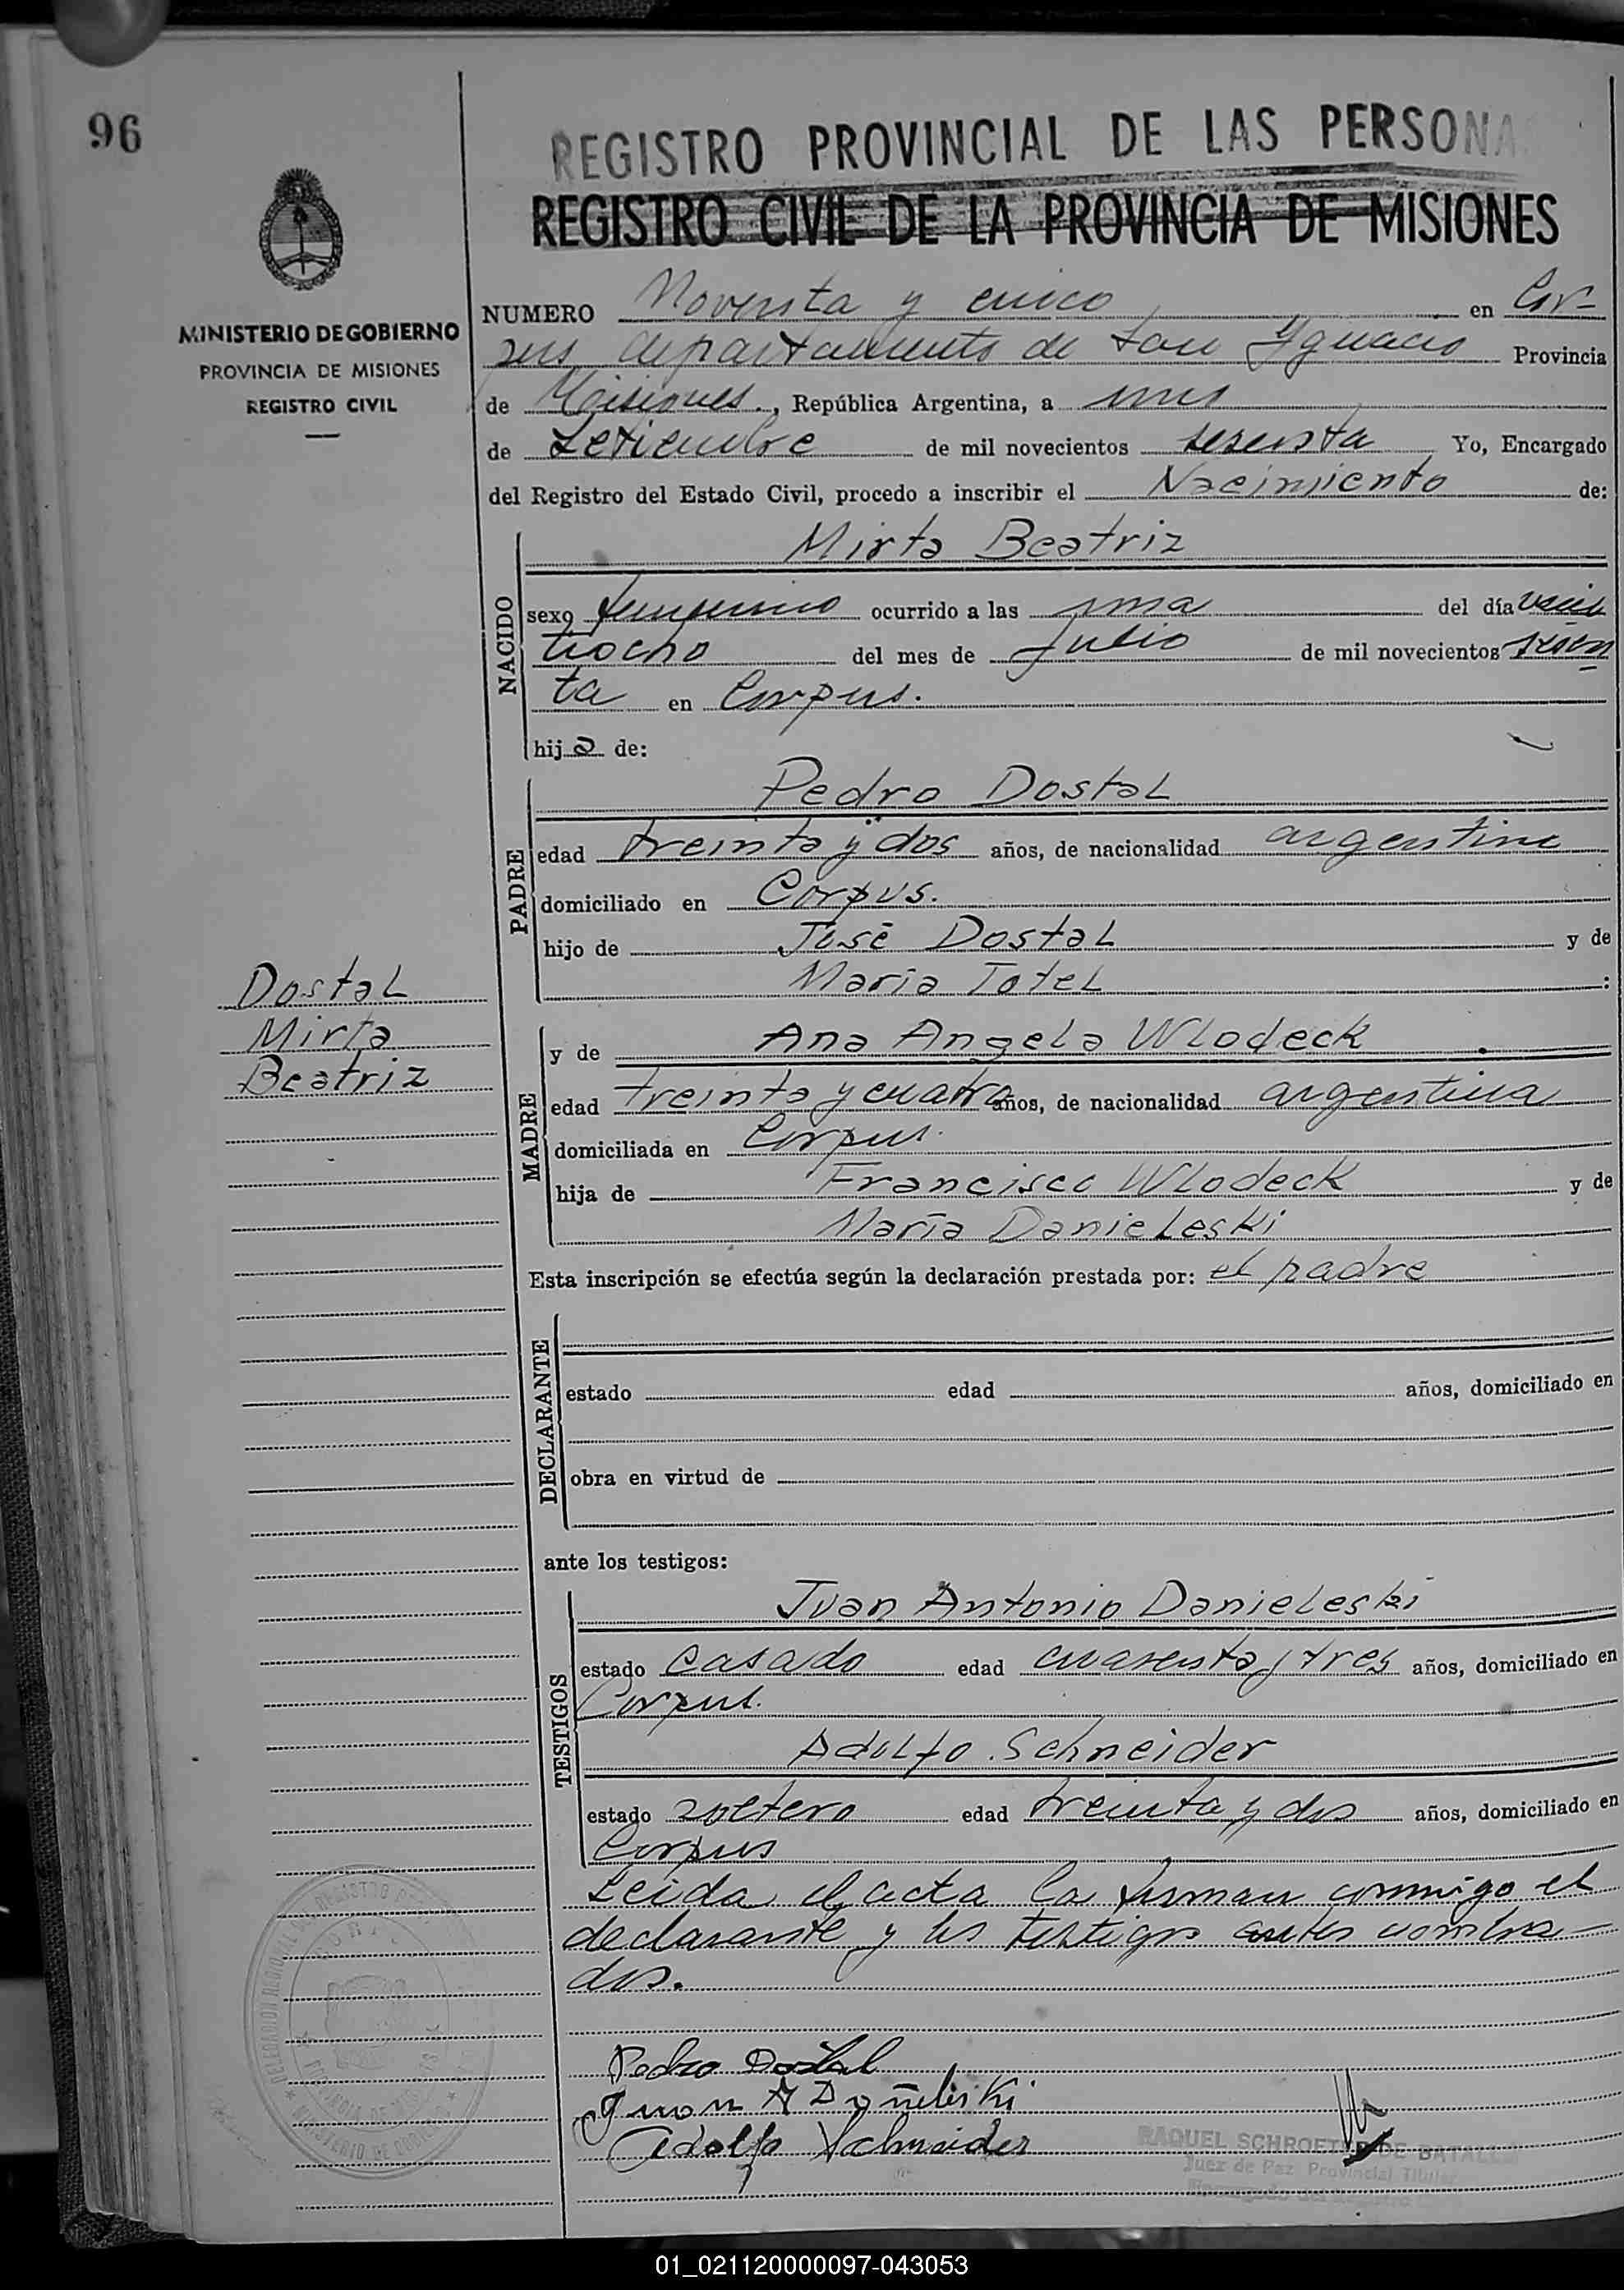 96
REGISTRO PROVINCIAL DE LAS PERSONA
REGISTRO CIVIL DE LA PROVINCIA DE MISIONES
MINISTERIO DE GOBIERNO
PROVINCIA DE MISIONES
REGISTRO CIVIL
NUMERO Noventa y cinco en Cor-
pus departamento de San Ygnacio Provincia
de Misiones., República Argentina, a uno
de Setiembre de mil novecientos sesenta Yo, Encargado
del Registro del Estado Civil, procedo a inscribir el Nacimiento de:
NACIDO
Mirta Beatriz
sexo femenino ocurrido a las una del día vein
tiocho del mes de Julio de mil novecientos sesen
ta en Corpus.
hija de:
PADRE
Pedro Dostal
edad treinta y dos años, de nacionalidad argentino
domiciliado en Corpus.
hijo de José Dostal y de
María Totel :
MADRE
y de Ana Angela Wlodeck
edad treinta y cuatro años, de nacionalidad argentina
domiciliada en Corpus.
hija de Francisco Wlodeck y de
María Danieleski
Dostal
Mirta
Beatriz
Esta inscripción se efectúa según la declaración prestada por: el padre
DECLARANTE
estado edad años, domiciliado en
obra en virtud de
ante los testigos:
TESTIGOS
Juan Antonio Danieleski
estado casado edad cuarenta y tres años, domiciliado en
Corpus.
Adolfo Schneider
estado soltero edad treinta y dos años, domiciliado en
Corpus
Leida el acta la firman conmigo el
declarante y los testigos antes nombra
dos.
Pedro Dostal
Juan A Dañeleski
Adolfo Schneider
RAQUEL SCHROETER DE BATALLA
Juez de Paz Provincial Titular
01_021120000097-043053